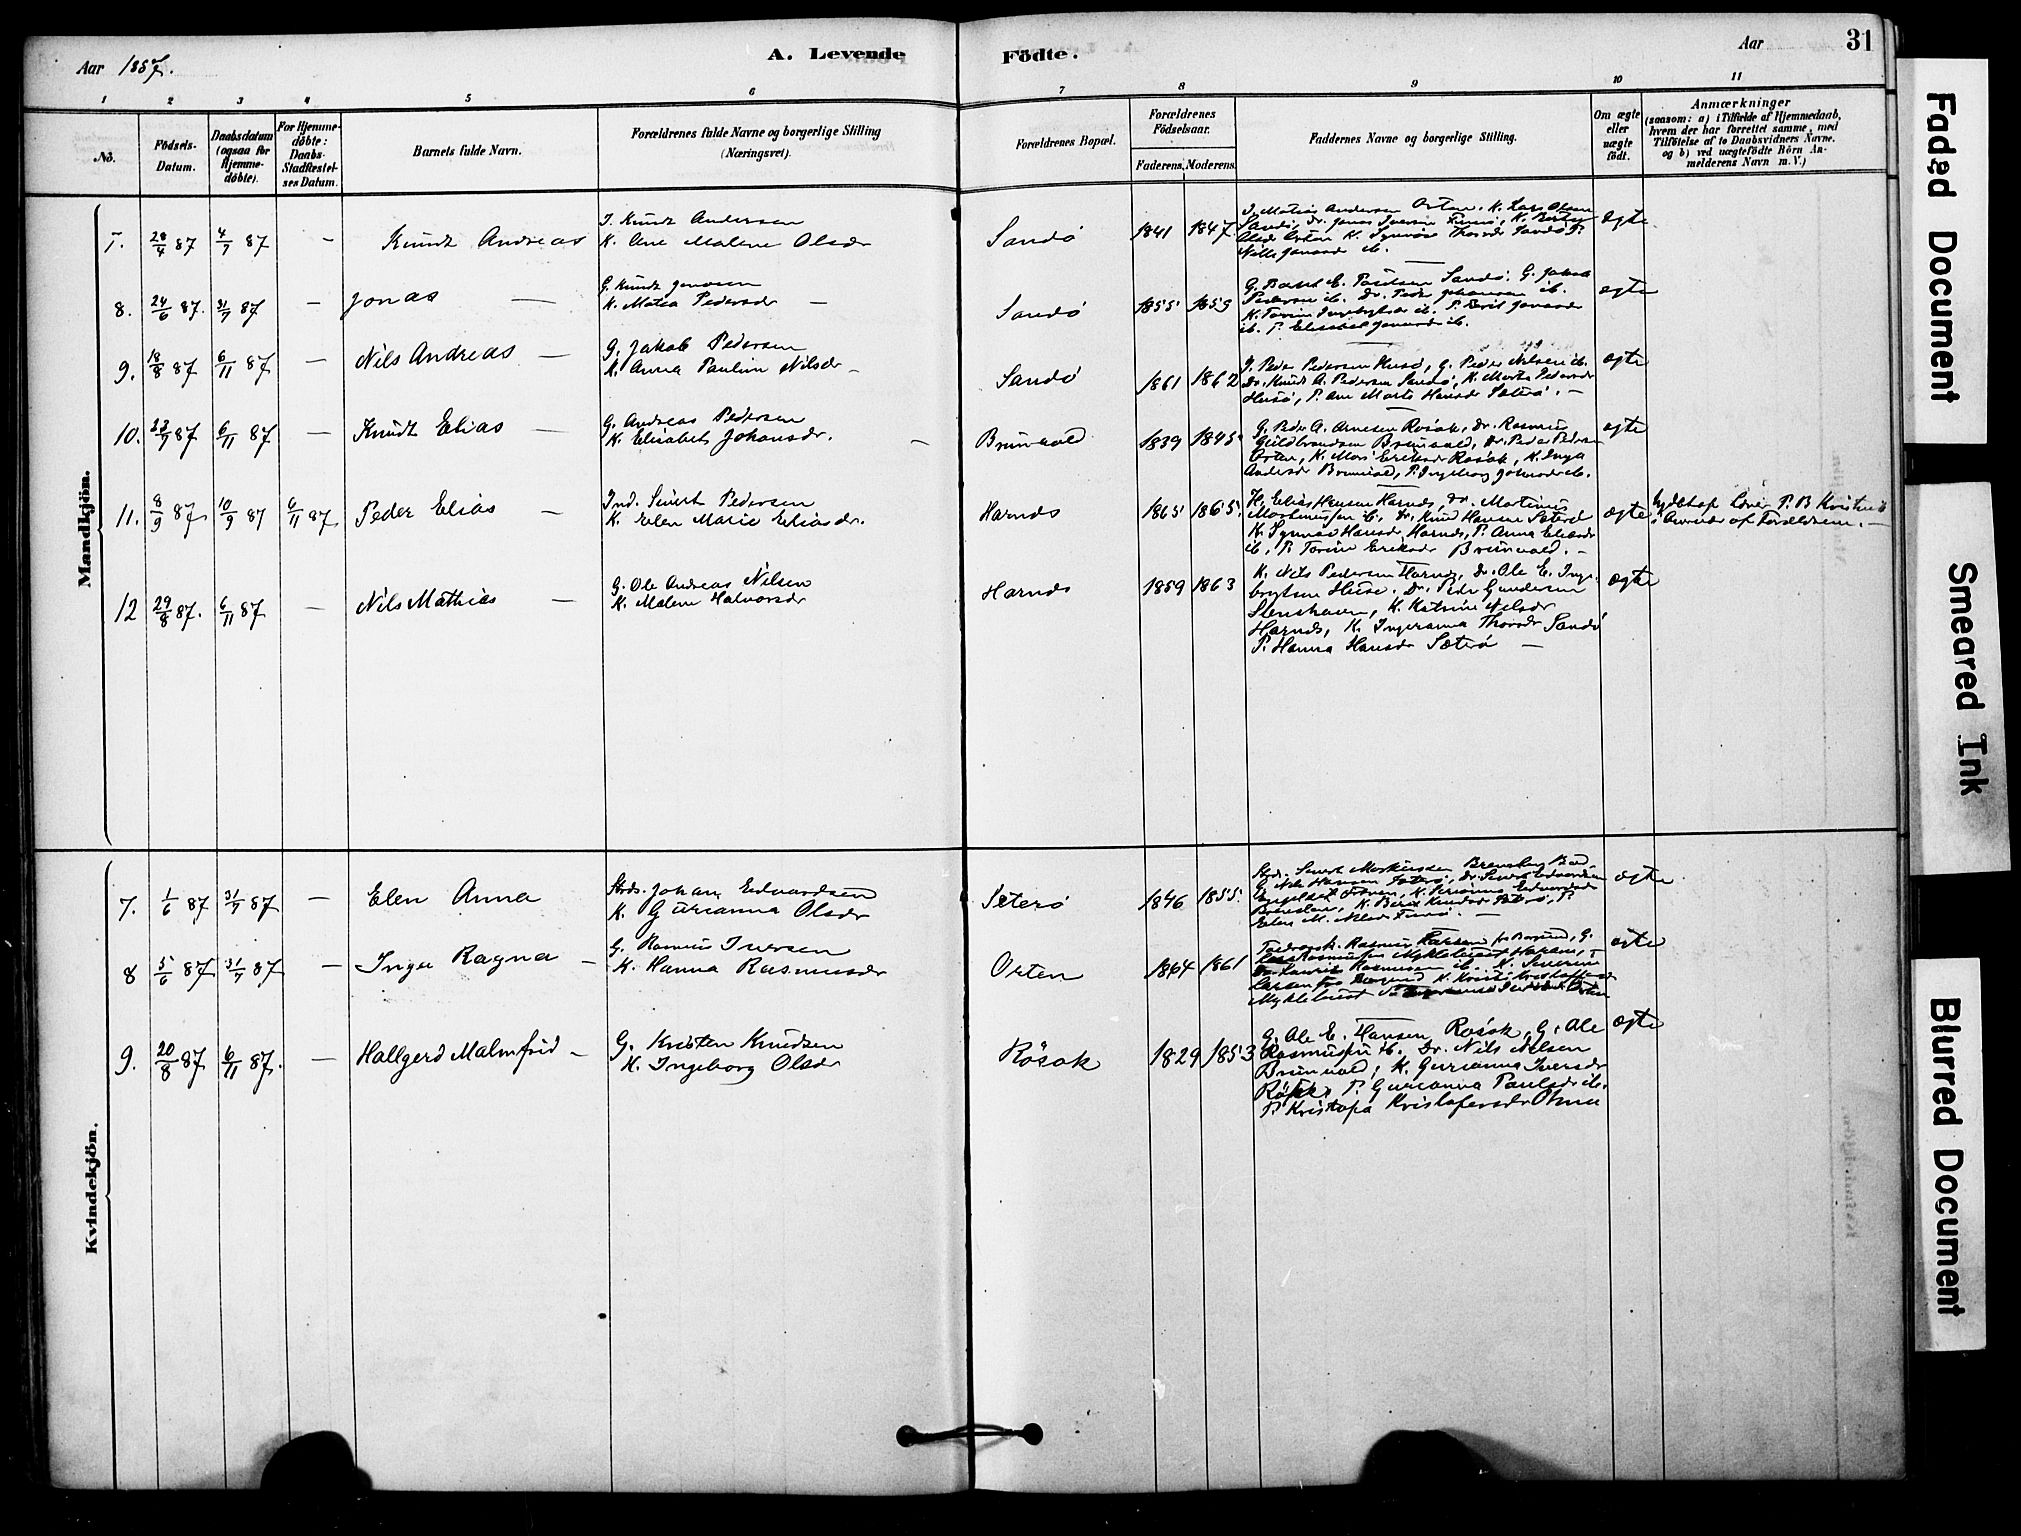 Aar 1887.
A. Levende
Födte.
Aar
31
1 2 3 4 5 6 7 8 9 10 11
No.
Födsels-
Datum.
Daabsdatum
(ogsaa for
Hjemme-
döbte).
For Hjemme-
döbte:
Daabs-
Stadfæstel-
ses Datum.
Barnets fulde Navn.
Forældrenes fulde Navne og borgerlige Stilling
(Næringsvei).
Forældrenes Bopæl.
Forældrenes
Födselsaar.
Faderens. Moderens.
Faddernes Navne og borgerlige Stilling.
Om ægte
eller
uægte
født.
Anmærkninger
(saasom: a) i Tilfælde af Hjemmedaab,
hvem der har forrettet samme, med
Tilföielse af to Daabsvidners Navne.
og b) ved uægtefödte Börn An-
melderens Navn m. V.)
Mandkjön.
7. 28/4 87 4/7 87 - Knudt Andreas
I. Knudt Andersen
K. Ane Malene Olsdr
Sandö 1841 1847
I. Matias Andersen Orten, K. Lars Olsen
Sandö, Dr. Jonas Iversen
Olsdr Orten K. Synnöve Thorsdr Sandö P.
Nille Jonasdr ib.
ægte
8. 24/6 87. 31/7 87 - Jonas -
G. Knudt Jonasen
K. Matea Pedersdr -
Sandö 1855 1853
Sandö. G. Jakob
Pedersen ib. Dr. Peder Johansen ib.
K. Torine Ingebrigtsdr ib. P. Berit Jonasdr
ib. P. Elisabet Jonasdr ib.
ægte
9. 18/8 87 6/11 87 - Nils Andreas -
G. Jakob Pedersen
K. Anna Pauline Nilsdr -
Sandö 1861 1862
I. Peder Pedersen Husö, G. Peder Nilsen ib.
Dr. Knud A. Pedersen Sandö, K. Marta Pedersdr
Husö, P. Ane Marta Hansdr Sæterö. -
ægte
10. 23/7 87 6/11 87 - Knudt Elias -
G. Andreas Pedersen
K. Elisabet Johansdr. -
Brunvold 1839 1845
G. Peder A. Arnesen Rösok, Dr. Rasmus
Guldbrandsen Brunvold, Dr. Peder Pedersen
Orten, K. Mari Eriksdr Rösok, K. Inga
Andersdr Brunvold, P. Ingeborg Johansdr ib.
ægte
11. 8/9 87 10/9 87 6/11 87 Peder Elias -
Ind. Sivert Pedersen
K. Elen Marie Eliasdr.
Harnds 1865 1865.
H. Elias Hansen Harnds, Dr. Martinus
Martinussen ib, Dr. Knud Hansen Sæterö
K. Synnöve Hansdr Harnds, P. Anna Eliasdr
ib, P. Torine Eriksdr Brunvold. -
ægte
af Forældrene. -
12 29/8 87. 6/11 87 - Nils Mathias -
G. Ole Andreas Nilsen
K. Malene Halvorsdr
Harnds 1859 1863
K. Nils Pedersen Harnds, Dr. Ole E. Inge-
brigtsen Husö. Dr. Peder Gundersen
Stenshavn, K. Katrine Nilsdr
Harnds, K. Ingeranna Thorsdr Sandö
P. Hanna Hansdr Sæterö -
ægte
Kvindekjön.
7. 1/6 87 31/7 87 - Elen Anna
Strds. Johan Edvardsen
K. Gurianna Olsdr
Seterö 1846 1855.
Strds. Sivert
G. Nils Hansen Sæterö, Dr. Sivert Edvardsen
K. Berit Knudsdr Sæterö, P.
Elen M. Nilsdr
ægte
8 5/6 87 31/7 87 - Inga Ragna -
G. Rasmus Iversen
K. Hanna Rasmusdr
Orten 1864 1861
Rasmus Larsen
Rasmussen Myklebust
Rasmussen ib. K. Severine
Larsen K. Kristi Kristoffersdr
Myklebust
ægte
9. 20/8 87 6/11 87. - Hallgerd Malmfrid -
G. Kristen Knudsen
K. Ingeborg Olsdr
Rösok 1829 1853
G. Ole E. Hansen Rösok, G. Ole
Rasmussen ib. Dr. Nils Nilsen
Brunvold, K. Gurianna Iversdr
Rösok, P. Gurianna Paulsdr ib.
P. Kristofa Kristofersdr Otnes
ægte
Faded Document
Smeared Ink
Blurred Document